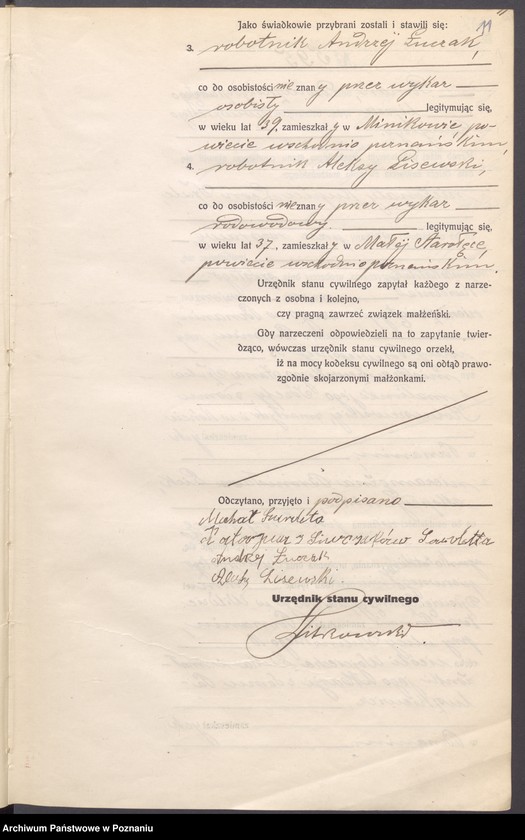 11
Jako świadkowie przybrani zostali i stawili się:
3. robotnik, Andrzej Łuczak,
co do osobistości nie znany przez wykaz
osobisty legitymując się,
w wieku lat 39, zamieszkały w Minikowie, po-
wiecie wschodnio poznańskim,
4. robotnik Aleksy Lisewski,
co do osobistości nie znany przez wykaz
rodowodowy. legitymując się,
w wieku lat 37, zamieszkały w Małej Starołęce,
powiecie wschodnio poznańskim.
Urzędnik stanu cywilnego zapytał każdego z narze-
czonych z osobna i kolejno,
czy pragną zawrzeć związek małżeński.
Gdy narzeczeni odpowiedzieli na to zapytanie twier-
dząco, wówczas urzędnik stanu cywilnego orzekł,
iż na mocy kodeksu cywilnego są oni odtąd prawo-
zgodnie skojarzonymi małżonkami.
Odczytano, przyjęto i podpisano
z
Andrzej Łuczak
Lisewski.
Urzędnik stanu cywilnego
Archiwum Państwowe w Poznaniu